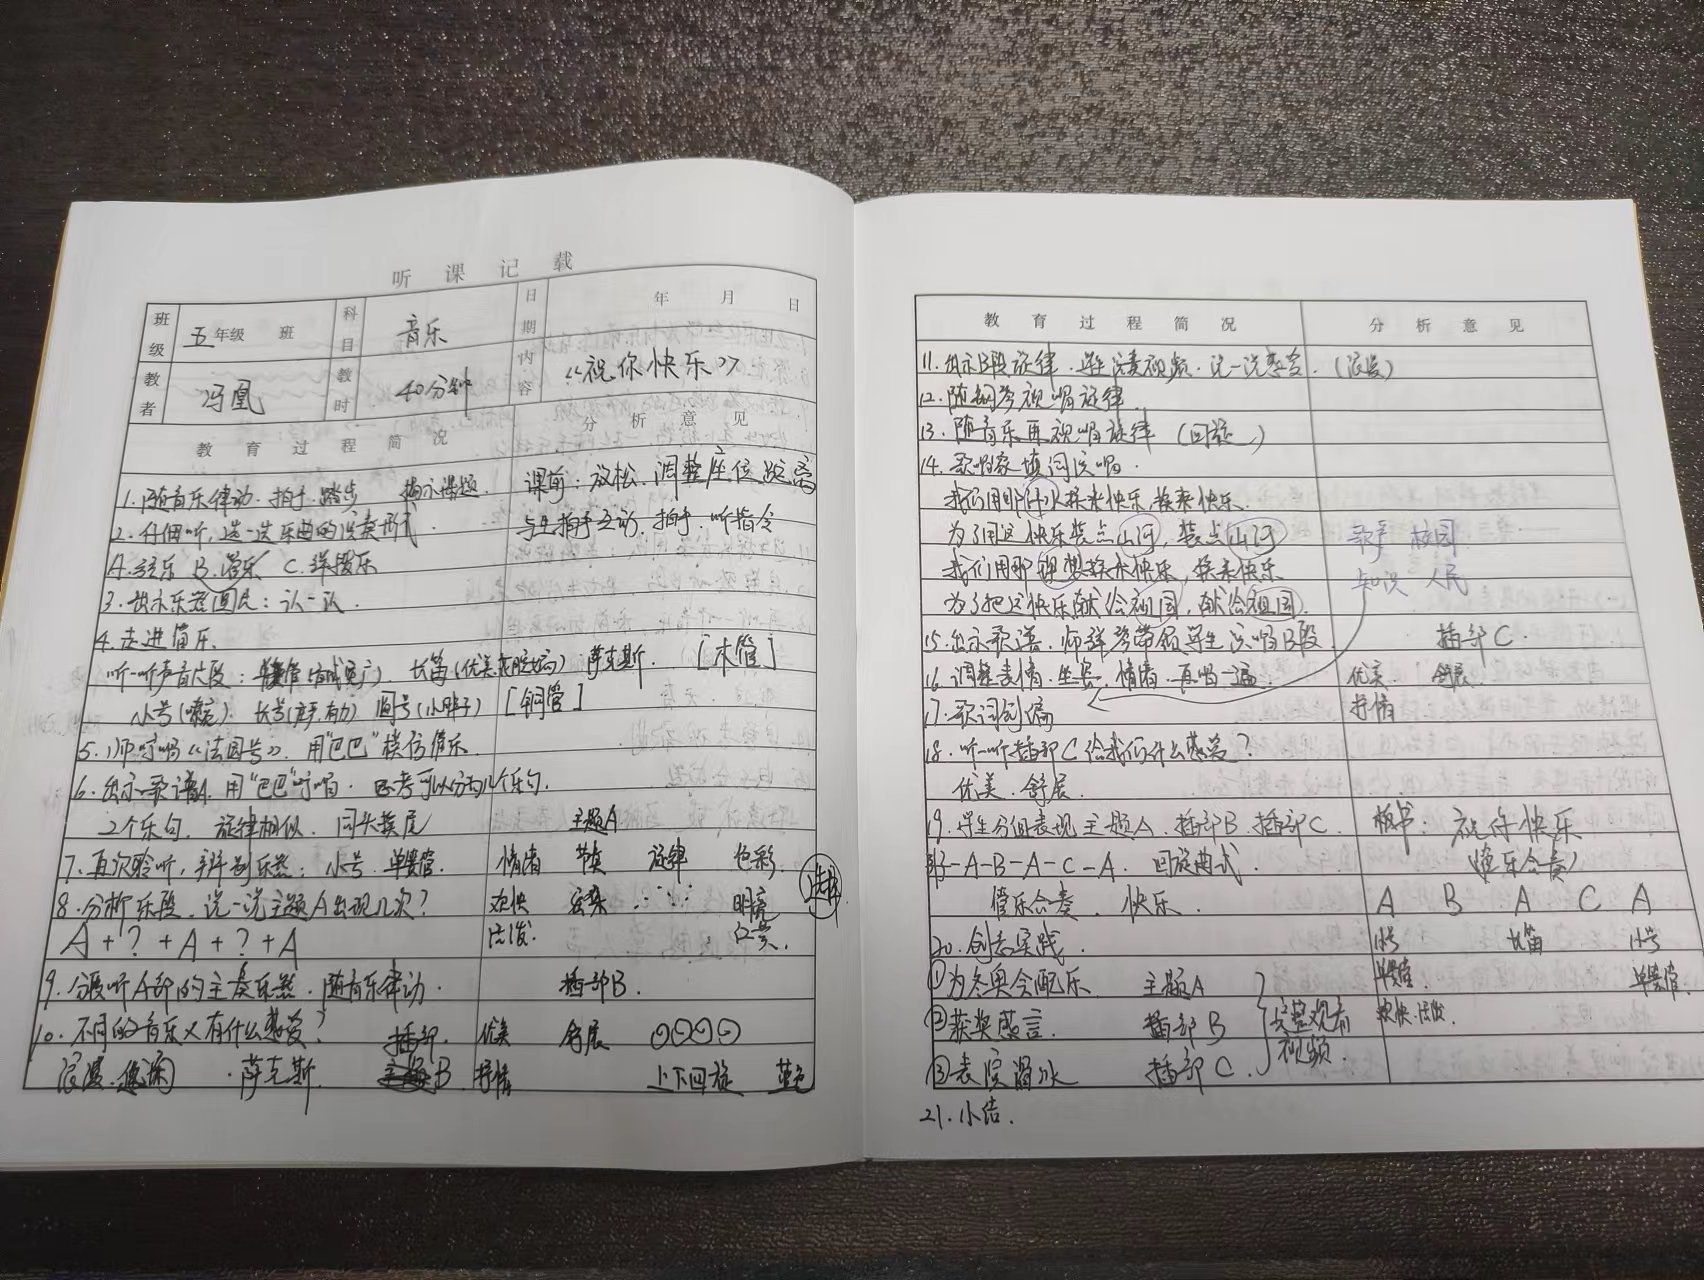 听课记载
班级 五年级 班 科目 音乐 日期 年 月 日
教者 冯凰 教时 40分钟 内容 《祝你快乐》
教育过程简况 分析意见
1.随音乐律动.拍手.踏步 揭示课题. 课前:放松.调整座位距离
2.仔细听,选一选乐曲的演奏形式. 与生拍手互动.拍手.听指令
A.弦乐 B.管乐 C.弹拨乐
3.出示乐器图片:认一认.
4.走进管乐.
听一听声音片段:单簧管 长笛 萨克斯. [木管]
小号(嘹亮) 长号 圆号(小胖子) [铜管]
5.师哼唱《法国号》.用"巴巴"模仿管乐.
6.出示歌谱A.用"巴巴"哼唱.思考可以分为几个乐句.
2个乐句.旋律相似.同头换尾 主题A
7.再次聆听,辨别乐器:小号.单簧管. 情绪 节奏 旋律 色彩
8.分析乐段.说一说主题A出现几次? 欢快 密集 明亮 选择
A+?+A+?+A 活泼. 红黄.
9.分段听A部的主奏乐器.随音乐律动. 插部B.
10.不同的音乐又有什么感受? 插部. 优美 舒展
浪漫. .萨克斯. B 抒情 上下回旋 蓝色
教育过程简况 分析意见
11.出示B段旋律.学生演奏视频.说一说感受.(浪漫)
12.随钢琴视唱旋律.
13.随音乐再视唱旋律
14.歌唱家填词演唱.
我们用那汗水换来快乐,换来快乐.
为了用这快乐装点山河,装点山河 歌声 校园
我们用那理想换来快乐,换来快乐 知识 人民
为了把这快乐献给祖国,献给祖国.
15.出示歌谱.师弹琴带领学生演唱B段 插部C.
16.调整表情.坐姿.情绪.再唱一遍. 优美. 舒展.
17.歌词创编 抒情
18.听一听插部C给我们什么感受?
优美.舒展.
19.学生分组表现主题A.插部B.插部C. 板书: 祝你快乐
A-B-A-C-A.回旋曲式. (管乐合奏)
管乐合奏.快乐. A B A C A
20.创意实践. 小号 长笛 小号
①为冬奥会配乐 主题A 单簧管. 单簧管.
②获奖感言. 插部B 完整观看视频. 欢快.活泼.
③表演滑冰 插部C.
21.小结.